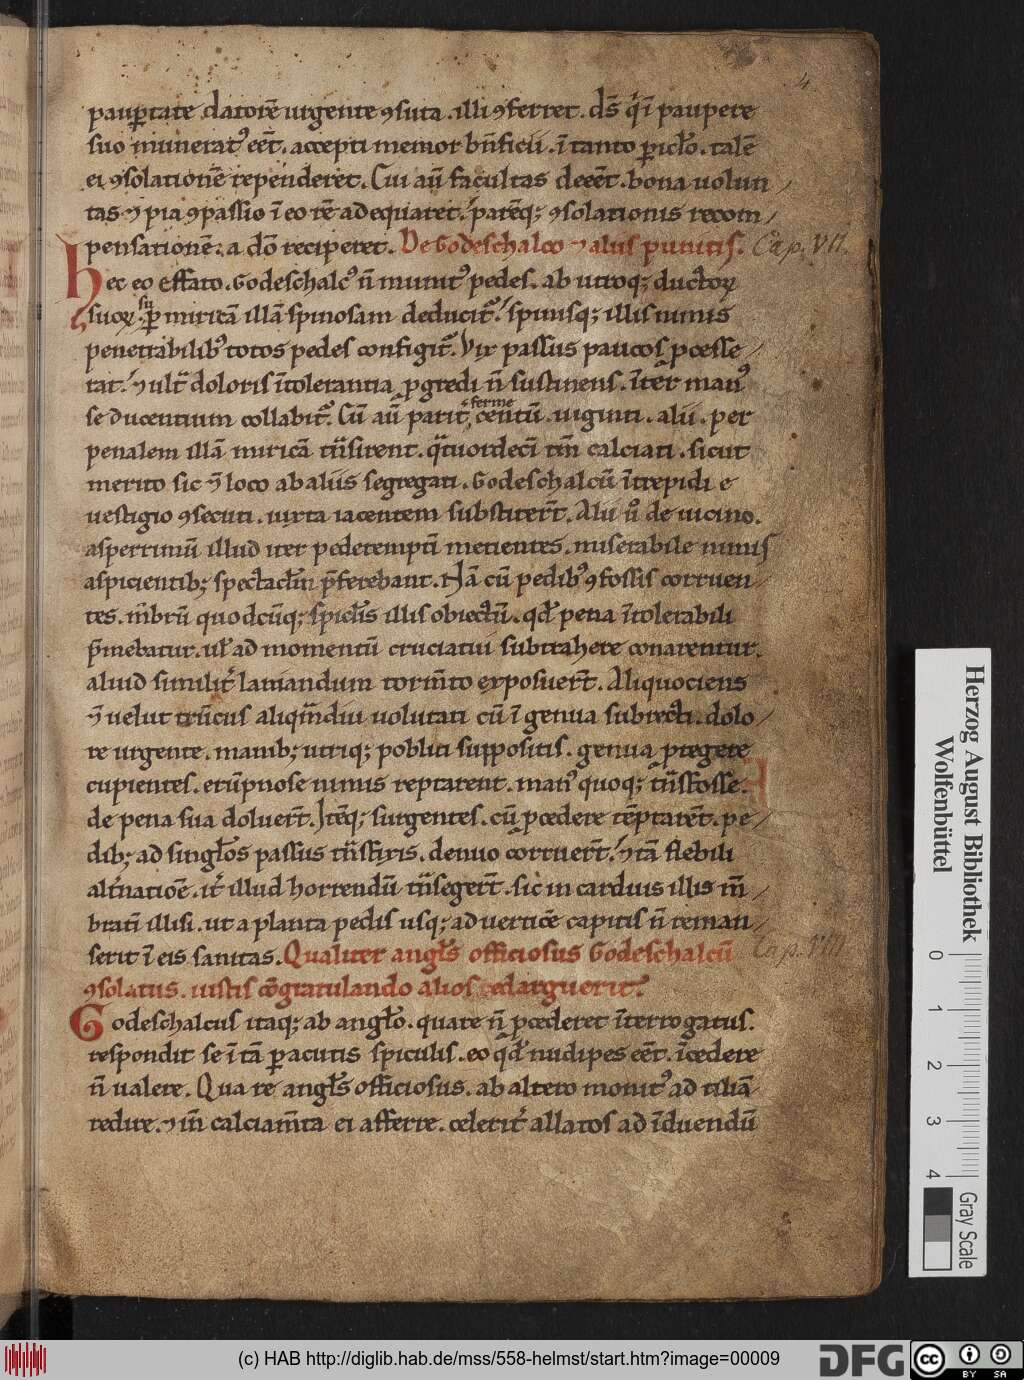 4
paup̱tate datorē urgente ꝯsuta. illi ꝯferret. ds̄ qͥ ī paupere
suo muneratꝰ eēt. accepti memor bn̄ficii. ī tanto ꝑicl̄o. talē
ei ꝯsolationē rependeret. Cui aū facultas deeēt. bona uolun
tas ⁊ pia ꝯpassio ī eo rē adequaret. parēq; ꝯsolationis recom
pensationē. a dō reciperet. De Godeschalco ⁊ aliis punitis. Cap. VII.
Hec eo effato. Godeschalcꝰ n̄ munitꝰ pedes. ab utroq; ductoꝝ
suoꝝ. su ꝑ miricā illā spinosam deducitꝰ. spinisq; illis nimis
penetrabilibꝰ totos pedes configitꝰ. Vix passus paucos ꝓcesse
rat. ⁊ ult̄ doloris ītolerantia ꝓgredi n̄ sustinens. īter manꝰ
se ducentium collabitꝰ. Cū aū parit̄ ferme centū. uiginti. alii. per
penalem illā miricā tn̄sirent. qͣtuordecī tm̄ calciati. sicut
merito sic ⁊ loco ab aliis segregati. Godeschalcū ītrepidi e
uestigio ꝯsecuti. iuxta iacentem substiter̄t. Alii u̾ de uicino.
asperrimū illud iter pedetemptī metientes. miserabile nimis
aspicientib; spectacl̄m p̄ferebant. Nā cū pedibꝰ ꝯfossis corruen
tes. mēbrū quodcūq; spiclīs illis obiectū. qd̄ pena ītolerabili
p̄mebatur. ul̄ ad momentū cruciatui subtrahere conarentur.
aliud similit̄ laniandum torm̄to exposuer̄t. Aliquociens
⁊ uelut trūcus aliqm̄diu uolutati cū ī genua subrecti. dolo
re urgente. manib; utriq; pobliti suppositis. genua ꝓtegere
cupientes. erūpnose nimis reptarent. manꝰ quoq; tn̄sfosse.
de pena sua doluer̄t. Itēq; surgentes. cū ꝓcedere tēptarēt. pe
dib; ad singl̄os passus tn̄sfixis. denuo corruer̄t. ⁊ tā flebili
alt̄natioē. it̄ illud horrendū tn̄seger̄t. sic in carduis illis m̄
bratī illisi. ut a planta pedis usq; ad uerticē capitis n̄ reman
serit ī eis sanitas. Qualiter angl̄s officiosus Godeschalcū Cap. VIII
ꝯsolatus. iustis cōgratulando alios redarguerit.
Godeschalcus itaq; ab angl̄o. quare n̄ ꝓcederet īterrogatus.
respondit se ī tā ꝑacutis spiculis. eo qd̄ nudipes eēt. īcedere
n̄ ualere. Qua re angl̄s officiosus. ab altero monitꝰ ad tiliā
redire. ⁊ in̄ calciam̄ta ei afferre. celerit̄ allatos ad īduendū
Herzog August Bibliothek
Wolfenbüttel
0 1 2 3 4
Gray Scale
(c) HAB http://diglib.hab.de/mss/558-helmst/start.htm?image=00009
DFG
cc BY SA